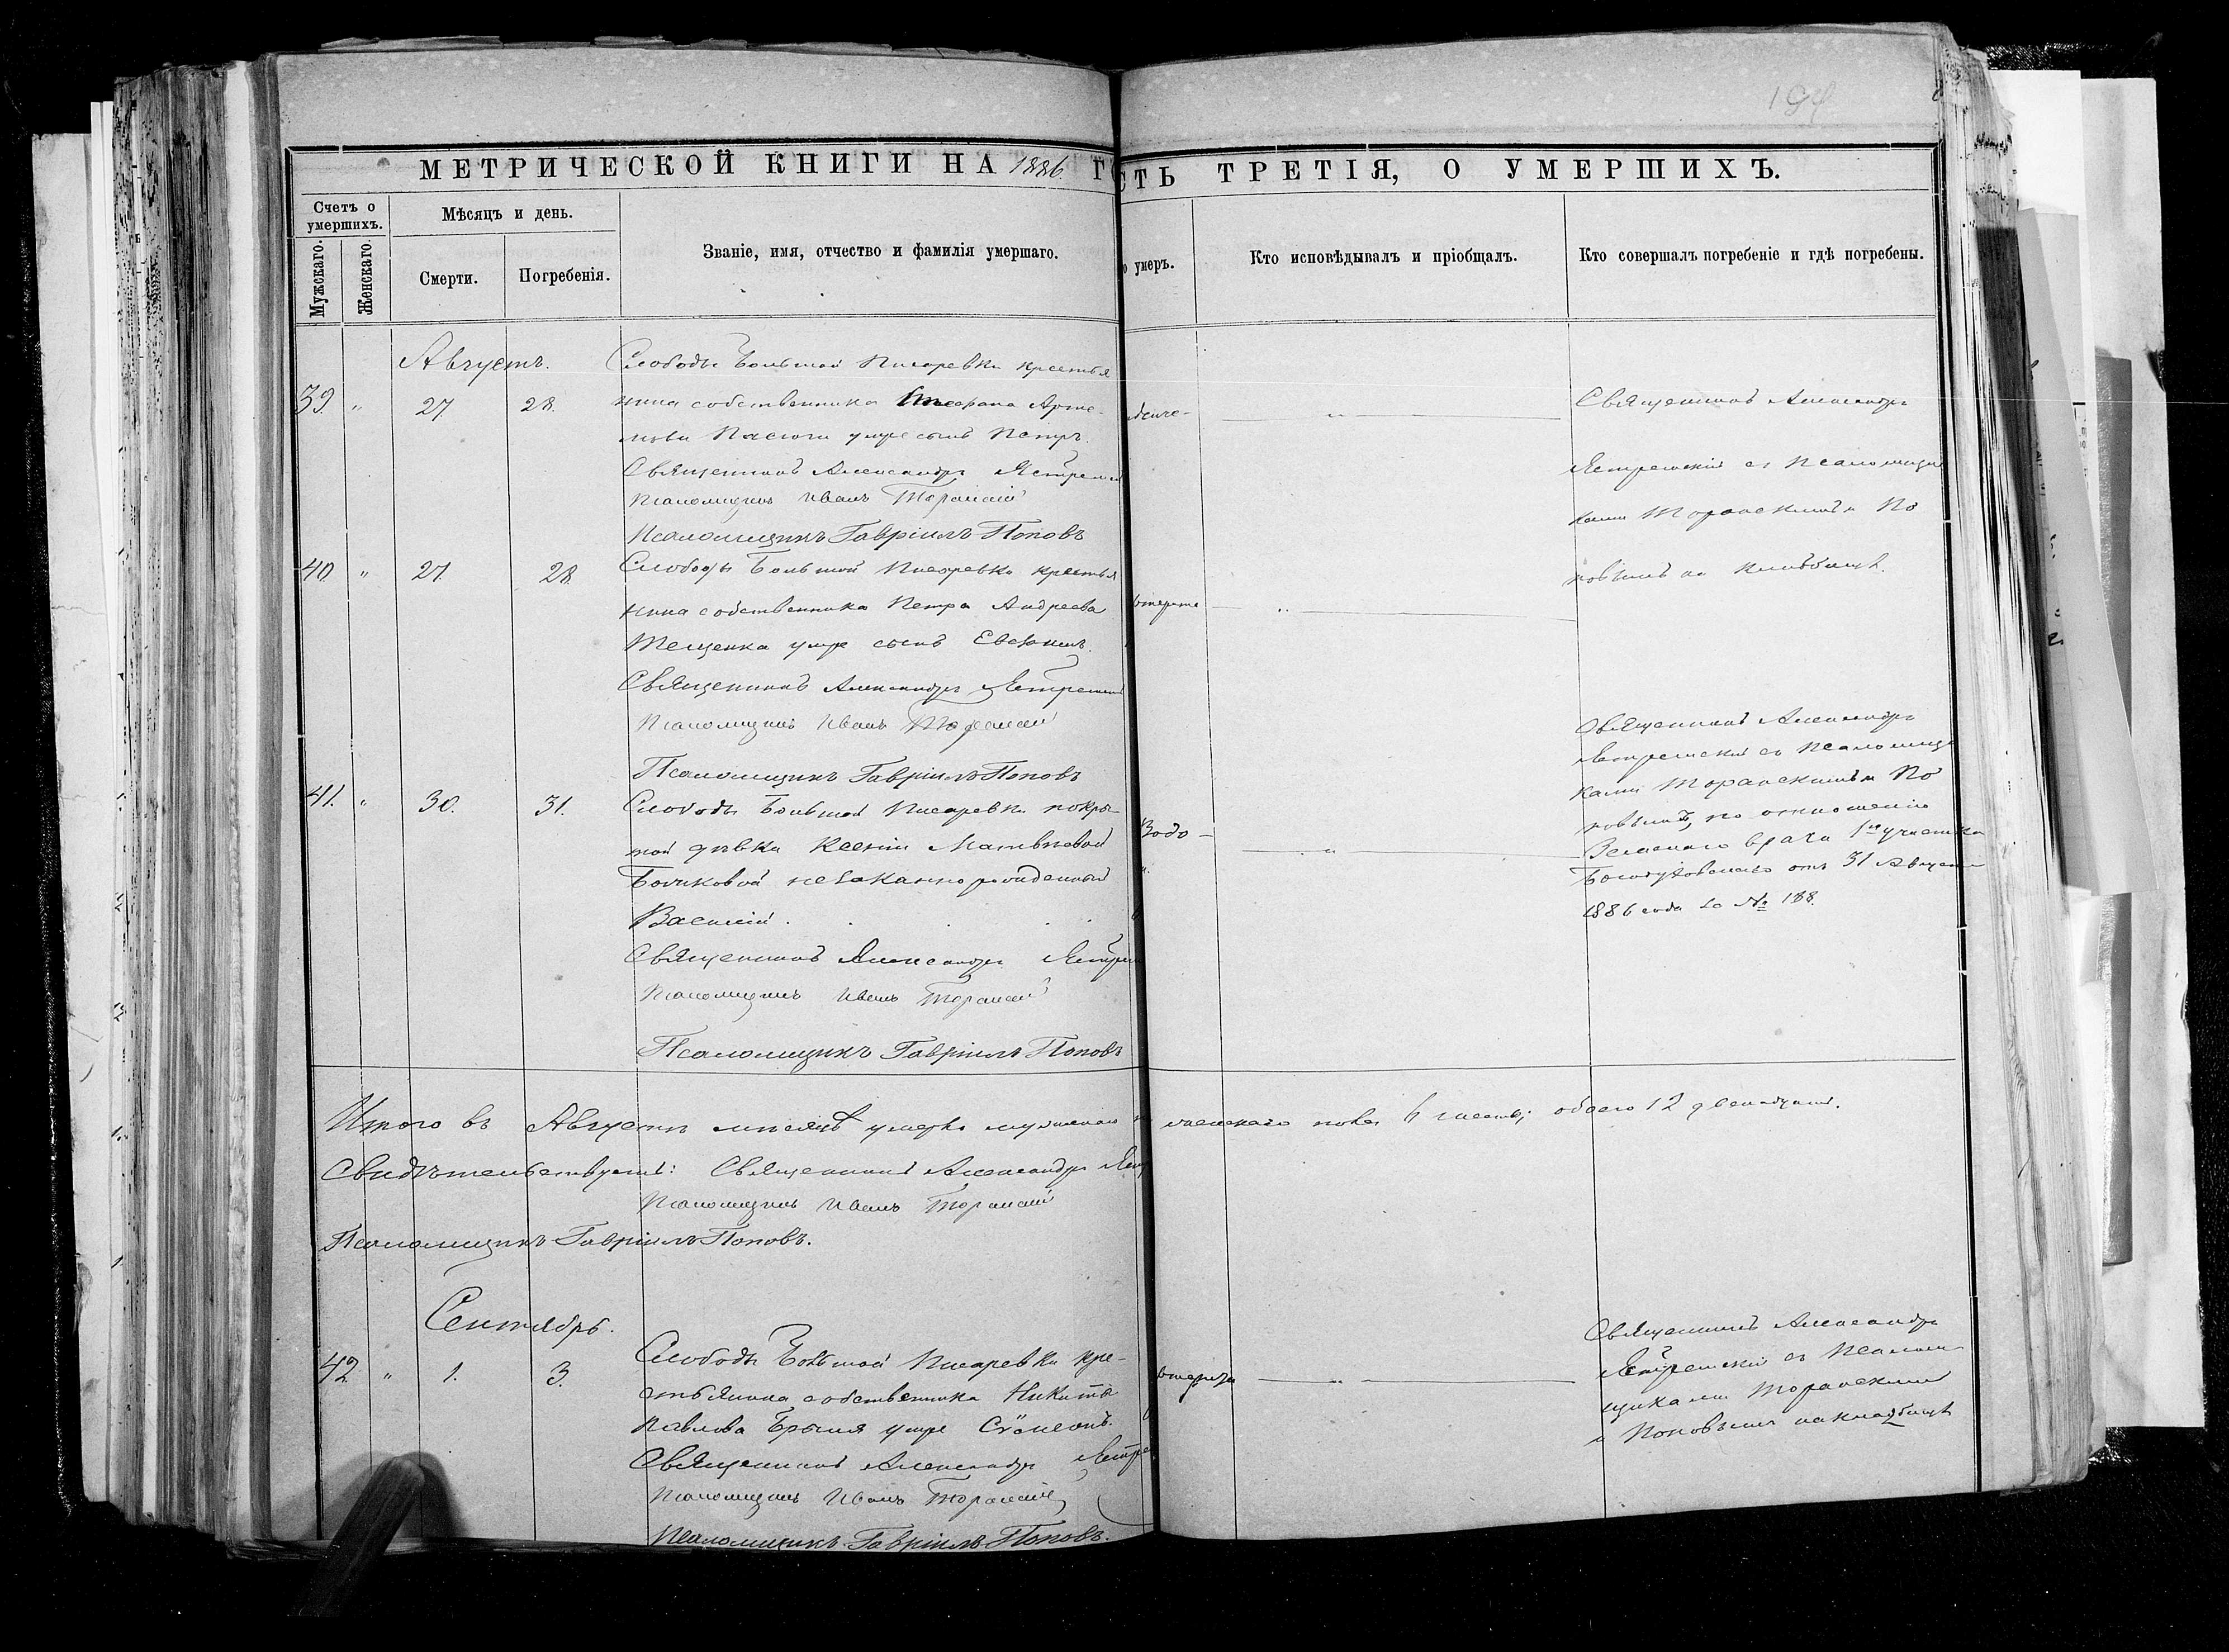 194
МЕТРИЧЕСКОЙ КНИГИ НА 1886 Г
СТЬ ТРЕТІЯ, О УМЕРШИХЪ.
Счетъ о умершихъ.
Мужскаго.
Женскаго.
Мѣсяцъ и день.
Смерти.
Погребенія.
Званіе, имя, отчество и фамилія умершаго.
о умеръ.
Кто исповѣдывалъ и пріобщалъ.
Кто совершалъ погребеніе и гдѣ погребены.
Августъ.
39. " 27. 28.
Слободы Большой Писаревки крестья
нина собственника Стефана Арте-
мова умре сынъ Петръ.
Священникъ Александръ
Псаломщикъ Иванъ Торанскій
Псаломщикъ Гавріилъ Поповъ
Священникъ Александръ
съ Псаломщи
ками Торанскимъ и По
повымъ на кладбищѣ.
40 " 27. 28.
Слободы Большой Писаревки крестья
нина собственника Петра Андреева
Тещенка умре сынъ Евфимъ.
Священникъ Александръ
Псаломщикъ Иванъ Торанскій
Псаломщикъ Гавріилъ Поповъ
41. " 30. 31.
Слободы Большой Писаревки покры-
той дѣвки Ксеніи Матвѣевой
незаконнорожденный
Василій.
Священникъ Александръ
Псаломщикъ Иванъ Торанскій
Псаломщикъ Гавріилъ Поповъ
Водо-
Священникъ Александръ
съ Псаломщи
ками Торанскимъ и По
повымъ, по отношенію
Земскаго врача 1го участка
Богодуховскаго отъ 31 Августа
1886 года за № 188.
Итого въ Августѣ мѣсяцѣ умерло мужескаго
женскаго пола 6 шесть; обоего 12 двенадцать.
Свидѣтельствуютъ: Священникъ Александръ
Псаломщикъ Иванъ Торанскій
Псаломщикъ Гавріилъ Поповъ.
Сентябрь.
42. " 1. 3.
Слободы Большой Писаревки кре-
стьянина собственника Никиты
Павлова умре Сѵмеонъ.
Священникъ Александръ
Псаломщикъ Иванъ Торанскій
Псаломщикъ Гавріилъ Поповъ.
Священникъ Александръ
съ Псалом-
щиками Торанскимъ
и Поповымъ на кладбищѣ